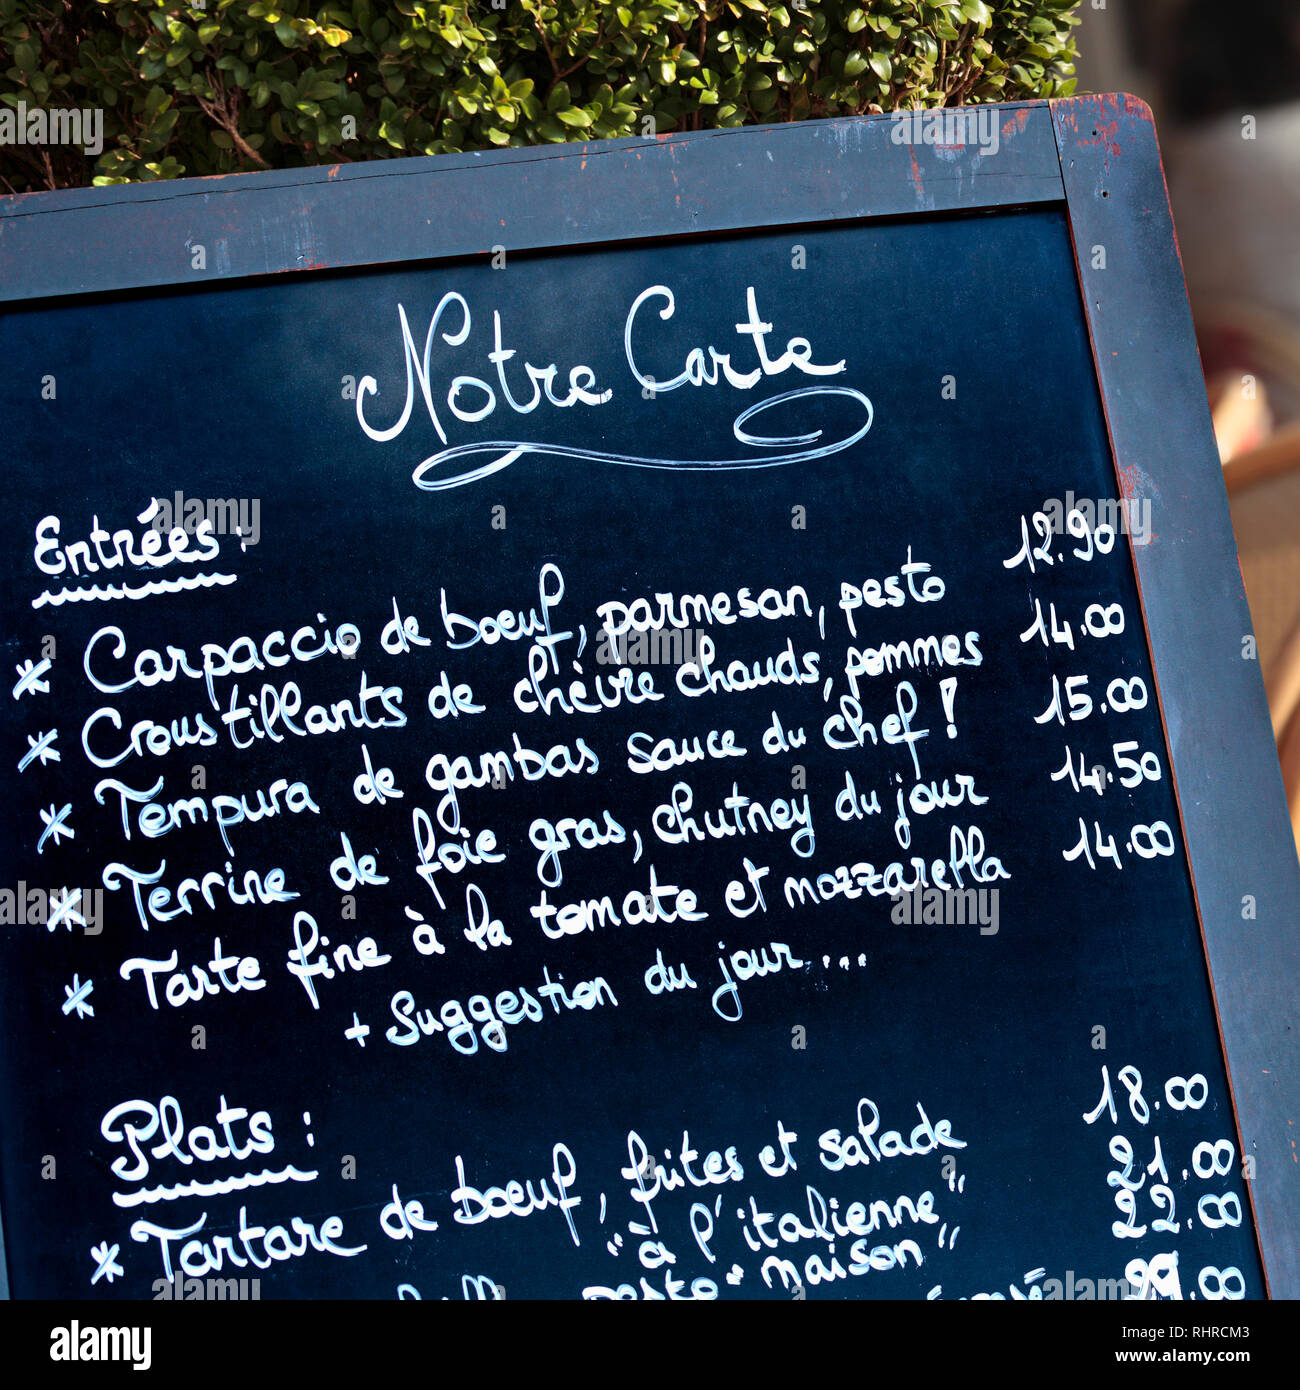 Notre Carte
Entrées :
* Carpaccio de boeuf, parmesan, pesto 12.90
* Croustillants de chèvre chauds, pommes 14.00
* Tempura de gambas sauce du chef ! 15.00
* Terrine de foie gras, chutney du jour 14.50
* Tarte fine à la tomate et mozzarella 14.00
+ Suggestion du jour ...
Plats :
* Tartare de boeuf, frites et salade 18.00
"à l'italienne" 21.00
"maison" 22.00
19.00
alamy
Image ID: RHRCM3
www.alamy.com